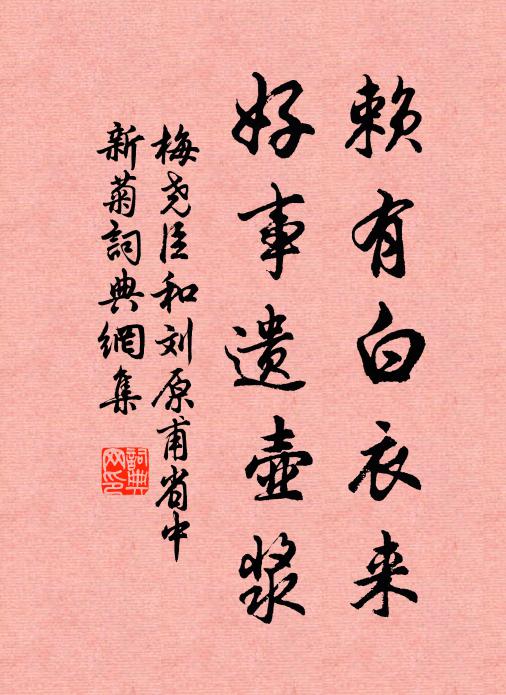 赖有白衣来
好事遗壶浆
梅尧臣和刘原甫省中
新菊詞典網集
詞典
网印